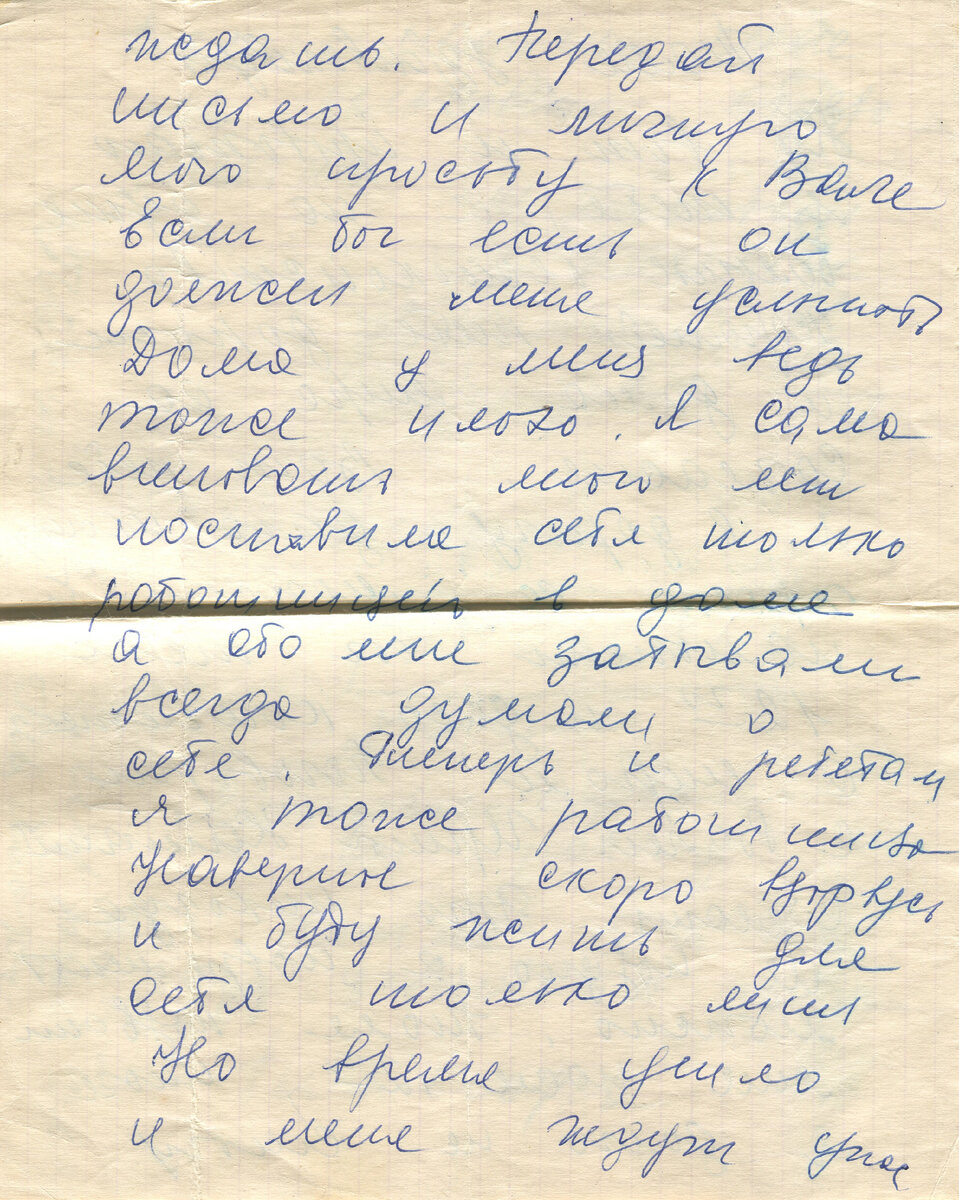 ждать. Передай
письмо и личную
мою просьбу к Вале
Если бог есть он
должен меня услышать
Дома у меня ведь
тоже плохо. Я сама
виновата много лет
поставила себя только
работницей в доме
а обо мне забывали
всегда думали о
себе. Теперь и ребетам
я тоже работница
Наверно скоро взорвусь
и буду жить для
себя только лишь
Но время ушло
и меня ждут уже